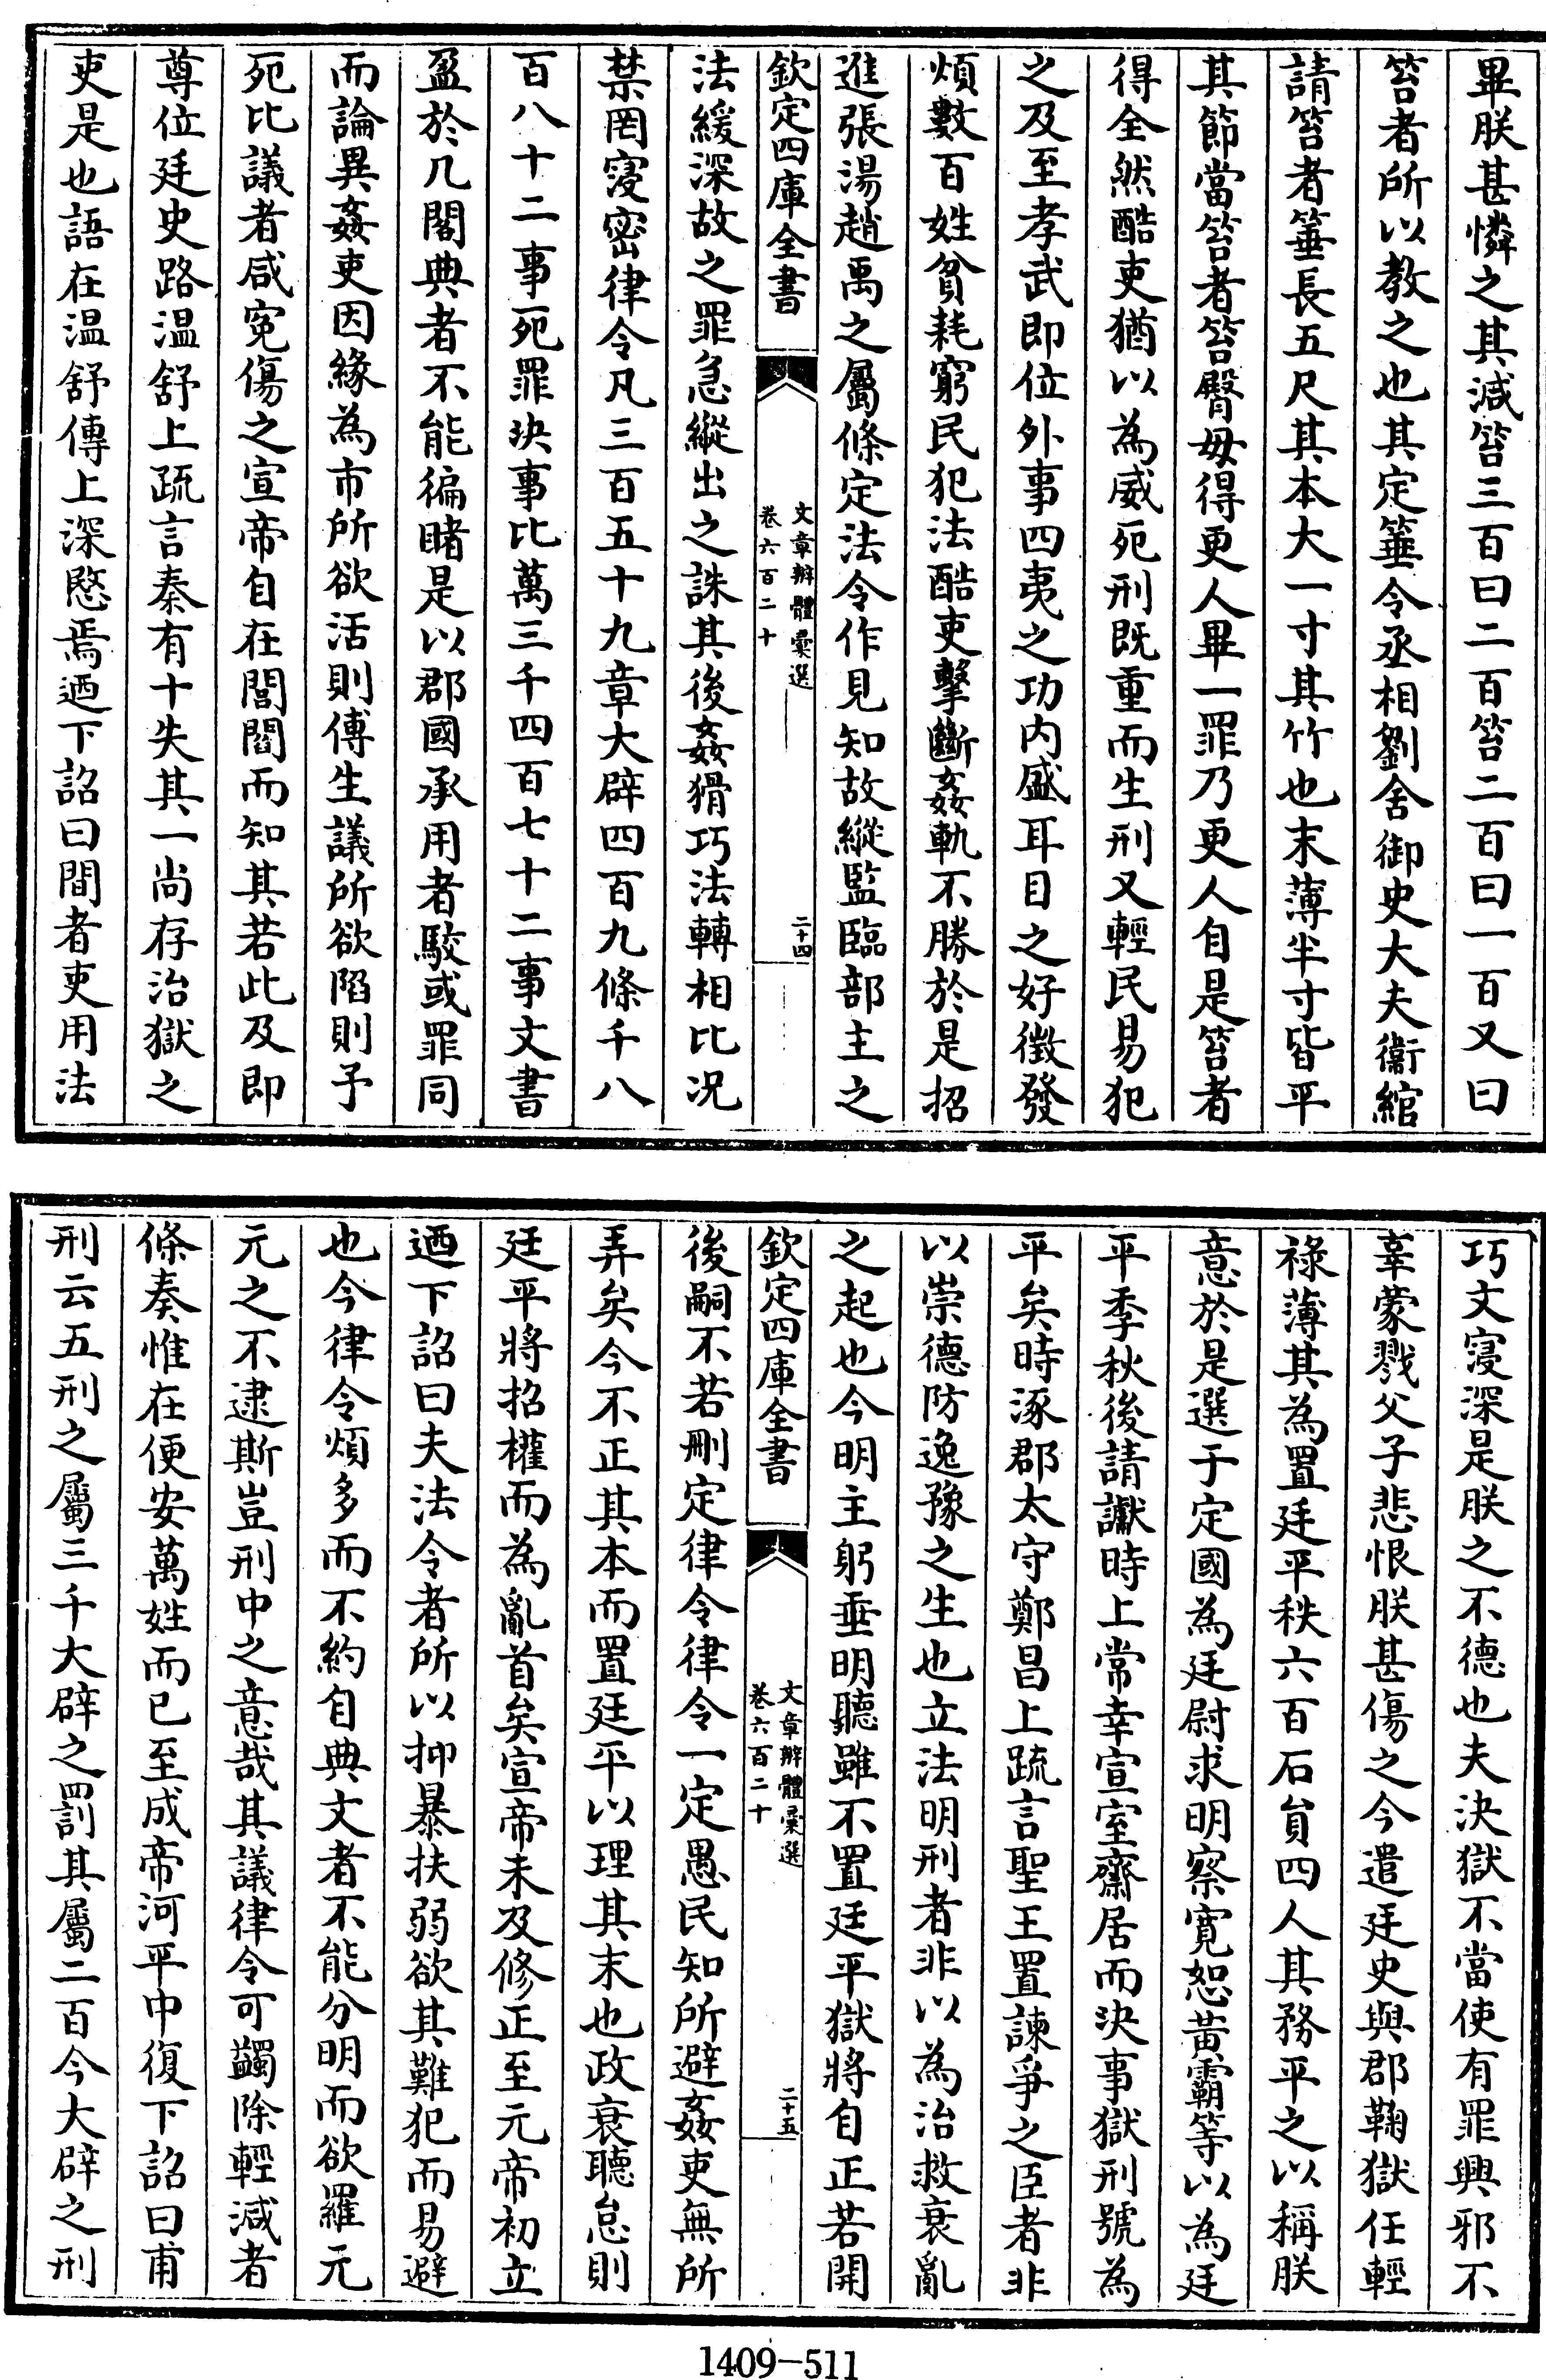 畢朕甚憐之其減笞三百曰二百笞二百曰一百又曰
笞者所以教之也其定箠令丞相劉舍御史大夫衞綰
請笞者箠長五尺其本大一寸其竹也末薄半寸皆平
其節當笞者笞臀毋得更人畢一罪乃更人自是笞者
得全然酷吏猶以為威死刑既重而生刑又輕民易犯
之及至孝武即位外事四夷之功内盛耳目之好徵發
煩數百姓貧耗窮民犯法酷吏擊斷姦軌不勝於是招
進張湯趙禹之屬條定法令作見知故縱監臨部主之
欽定四庫全書
文章辨體彙選
卷六百二十
二十四
法緩深故之罪急縱出之誅其後姦猾巧法轉相比况
禁罔寖密律令凡三百五十九章大辟四百九條千八
百八十二事死罪決事比萬三千四百七十二事文書
盈於几閣典者不能徧睹是以郡國承用者駮或罪同
而論異姦吏因緣為市所欲活則傅生議所欲陷則予
死比議者咸寃傷之宣帝自在閭閻而知其若此及即
尊位廷史路温舒上疏言秦有十失其一尚存治獄之
吏是也語在温舒傳上深愍焉迺下詔曰間者吏用法
巧文寖深是朕之不德也夫決獄不當使有罪興邪不
辜蒙戮父子悲恨朕甚傷之今遣廷史與郡鞠獄任輕
祿薄其為置廷平秩六百石員四人其務平之以稱朕
意於是選于定國為廷尉求明察寛恕黃霸等以為廷
平季秋後請讞時上常幸宣室齋居而決事獄刑號為
平矣時涿郡太守鄭昌上疏言聖王置諫爭之臣者非
以崇德防逸豫之生也立法明刑者非以為治救衰亂
之起也今明主躬垂明聽雖不置廷平獄將自正若開
欽定四庫全書
文章辨體彙選
卷六百二十
二十五
後嗣不若刪定律令律令一定愚民知所避姦吏無所
弄矣今不正其本而置廷平以理其末也政衰聽怠則
廷平將招權而為亂首矣宣帝未及修正至元帝初立
迺下詔曰夫法令者所以抑暴扶弱欲其難犯而易避
也今律令煩多而不約自典文者不能分明而欲羅元
元之不逮斯豈刑中之意哉其議律令可蠲除輕減者
條奏惟在便安萬姓而已至成帝河平中復下詔曰甫
刑云五刑之屬三千大辟之罰其屬二百今大辟之刑
1409-511